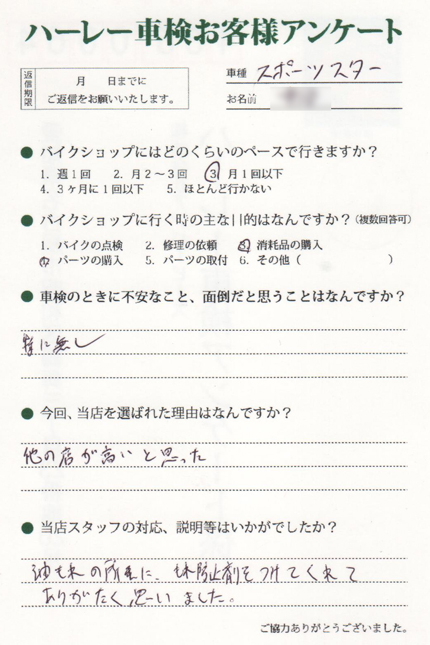 ハーレー車検お客様アンケート
返信期限
月 日までに
ご返信をお願いいたします。
車種 スポーツスター
お名前
● バイクショップにはどのくらいのペースで行きますか?
1. 週1回 2. 月2~3回 3 月1回以下
4. 3ヶ月に1回以下 5. ほとんど行かない
● バイクショップに行く時の主な目的はなんですか?(複数回答可)
1. バイクの点検 2. 修理の依頼 3 消耗品の購入
4 パーツの購入 5. パーツの取付 6. その他( )
● 車検のときに不安なこと、面倒だと思うことはなんですか?
特に無し
● 今回、当店を選ばれた理由はなんですか?
他の店が高いと思った
● 当店スタッフの対応、説明等はいかがでしたか?
油もれの所に、もれ防止剤をつけてくれて
ありがたく思いました。
ご協力ありがとうございました。